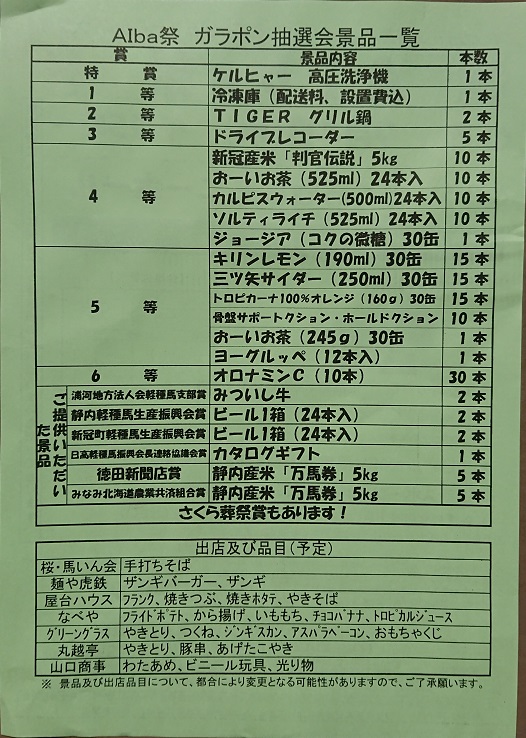 AIba祭 ガラポン抽選会景品一覧
賞 景品内容 本数
特 賞 ケルヒャー 高圧洗浄機 1本
1 等 冷凍庫(配送料、設置費込) 1本
2 等 TIGER グリル鍋 2本
3 等 ドライブレコーダー 5本
4 等 新冠産米「判官伝説」5kg 10本
おーいお茶(525ml)24本入 10本
カルピスウォーター(500ml)24本入 10本
ソルティライチ(525ml)24本入 10本
ジョージア(コクの微糖)30缶 1本
5 等 キリンレモン(190ml)30缶 15本
三ツ矢サイダー(250ml)30缶 15本
トロピカーナ100%オレンジ(160g)30缶 15本
骨盤サポートクション・ホールドクション 10本
おーいお茶(245g)30缶 1本
ヨーグルッペ(12本入) 1本
6 等 オロナミンC(10本) 30本
ご提供いただいた景品
浦河地方法人会軽種馬支部賞 みついし牛 2本
静内軽種馬生産振興会賞 ビール1箱(24本入) 2本
新冠町軽種馬生産振興会賞 ビール1箱(24本入) 2本
日高軽種馬振興会長連絡協議会賞 カタログギフト 1本
徳田新聞店賞 静内産米「万馬券」5kg 5本
みなみ北海道農業共済組合賞 静内産米「万馬券」5kg 5本
さくら葬祭賞もあります!
出店及び品目(予定)
桜・馬いん会 手打ちそば
麺や虎鉄 ザンギバーガー、ザンギ
屋台ハウス フランク、焼きつぶ、焼きホタテ、やきそば
なべや フライドポテト、から揚げ、いももち、チョコバナナ、トロピカルジュース
グリーングラス やきとり、つくね、ジンギスカン、アスパラベーコン、おもちゃくじ
丸越亭 やきとり、豚串、あげたこやき
山口商事 わたあめ、ビニール玩具、光り物
※ 景品及び出店品目について、都合により変更となる可能性がありますので、ご了承願います。